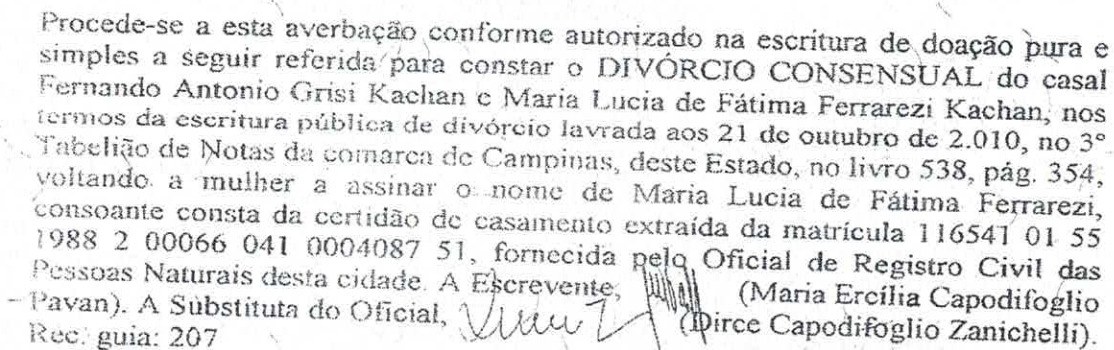 Procede-se a esta averbação conforme autorizado na escritura de doação pura e
simples a seguir referida para constar o DIVÓRCIO CONSENSUAL do casal
Fernando Antonio Grisi Kachan e Maria Lucia de Fátima Ferrarezi Kachan, nos
termos da escritura pública de divórcio lavrada aos 21 de outubro de 2.010, no 3º
Tabelião de Notas da comarca de Campinas, deste Estado, no livro 538, pág. 354,
voltando a mulher a assinar o nome de Maria Lucia de Fátima Ferrarezi,
consoante consta da certidão de casamento extraída da matrícula 116541 01 55
1988 2 00066 041 0004087 51, fornecida pelo Oficial de Registro Civil das
Pessoas Naturais desta cidade. A Escrevente, (Maria Ercília Capodifoglio
Pavan). A Substituta do Oficial, (Dirce Capodifoglio Zanichelli).
Rec. guia: 207